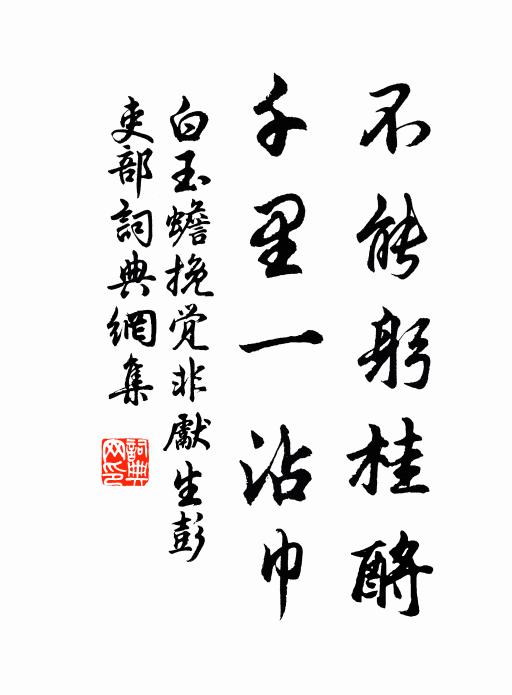 不能躬桂酹
千里一沾巾
白玉蟾挽觉非獻生彭
吏部詞典網集
詞典网印